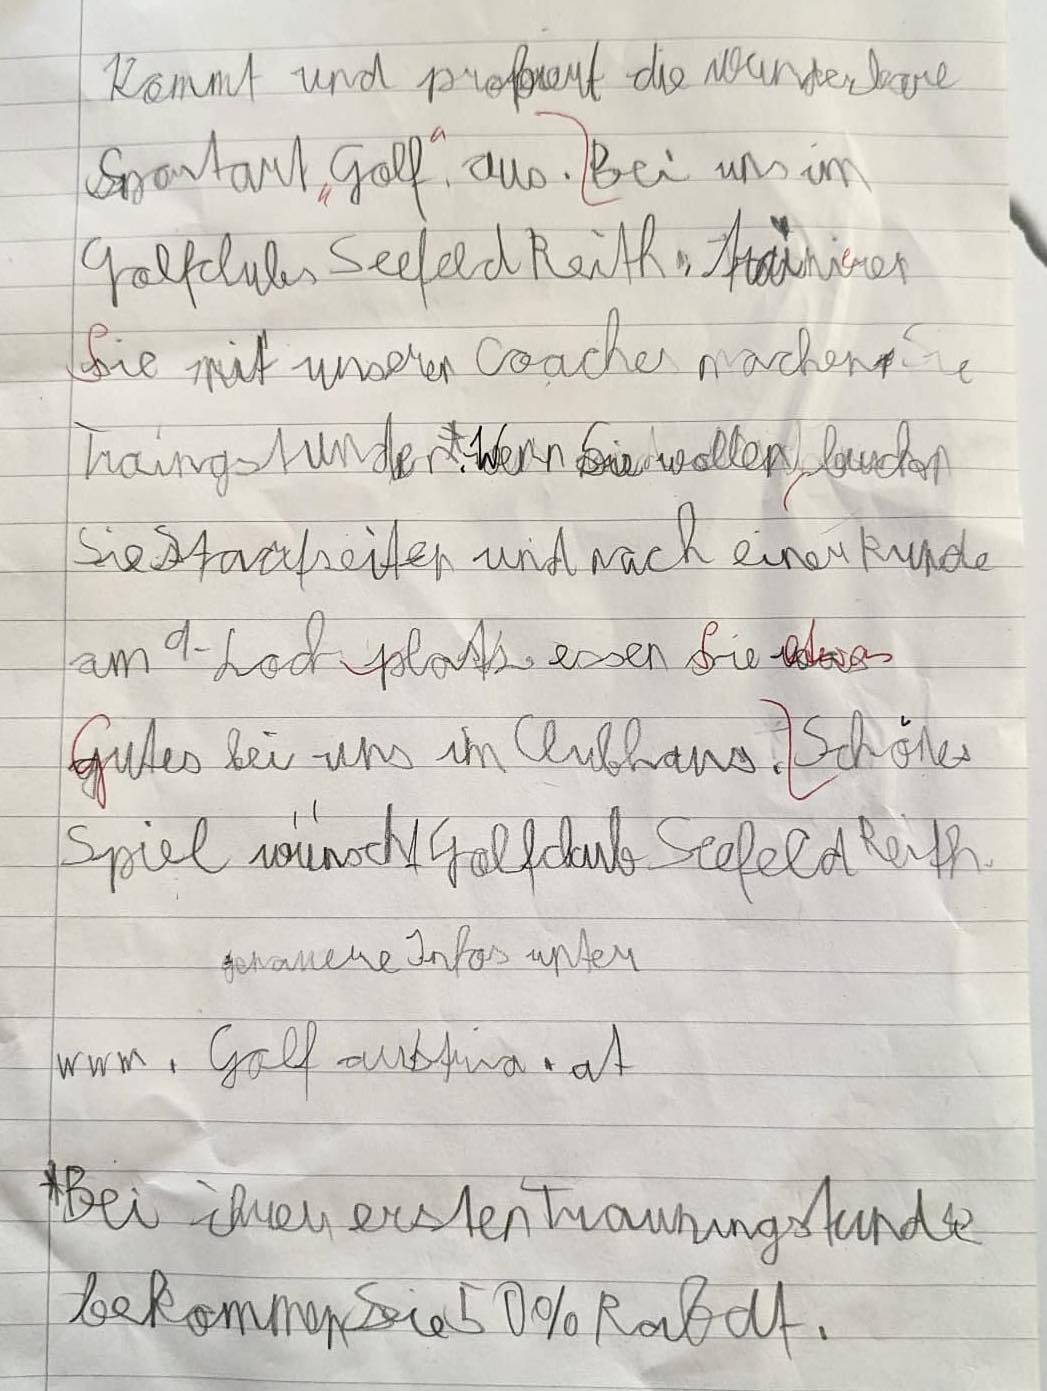 Kommt und probiert die wunderbare
Sportart „Golf“ aus. Bei uns im
Golfclub Seefeld Reith. trainieren
Sie mit unseren Coaches machen Sie
Traingstunden*. Wenn Sie wollen, buchen
Sie Startseiten und nach einer Runde
am 9-Loch platz. essen Sie etwas
Gutes bei uns im Clubhaus. Schönes
Spiel wünscht Golfclub Seefeld Reith.
genauere Infos unter
www. Golf austria. at
*Bei ihrer ersten Trainingstunde
bekommen Sie 50% Rabatt.